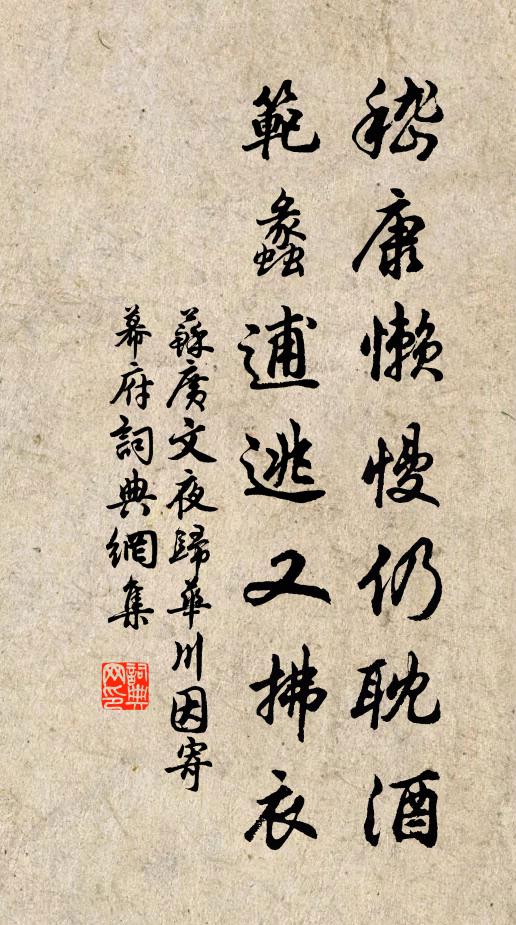 嵇康懶慢仍耽酒
範蠡逋逃又拂衣
蘇廣文夜歸華川因寄
幕府詞典網集
詞典网印